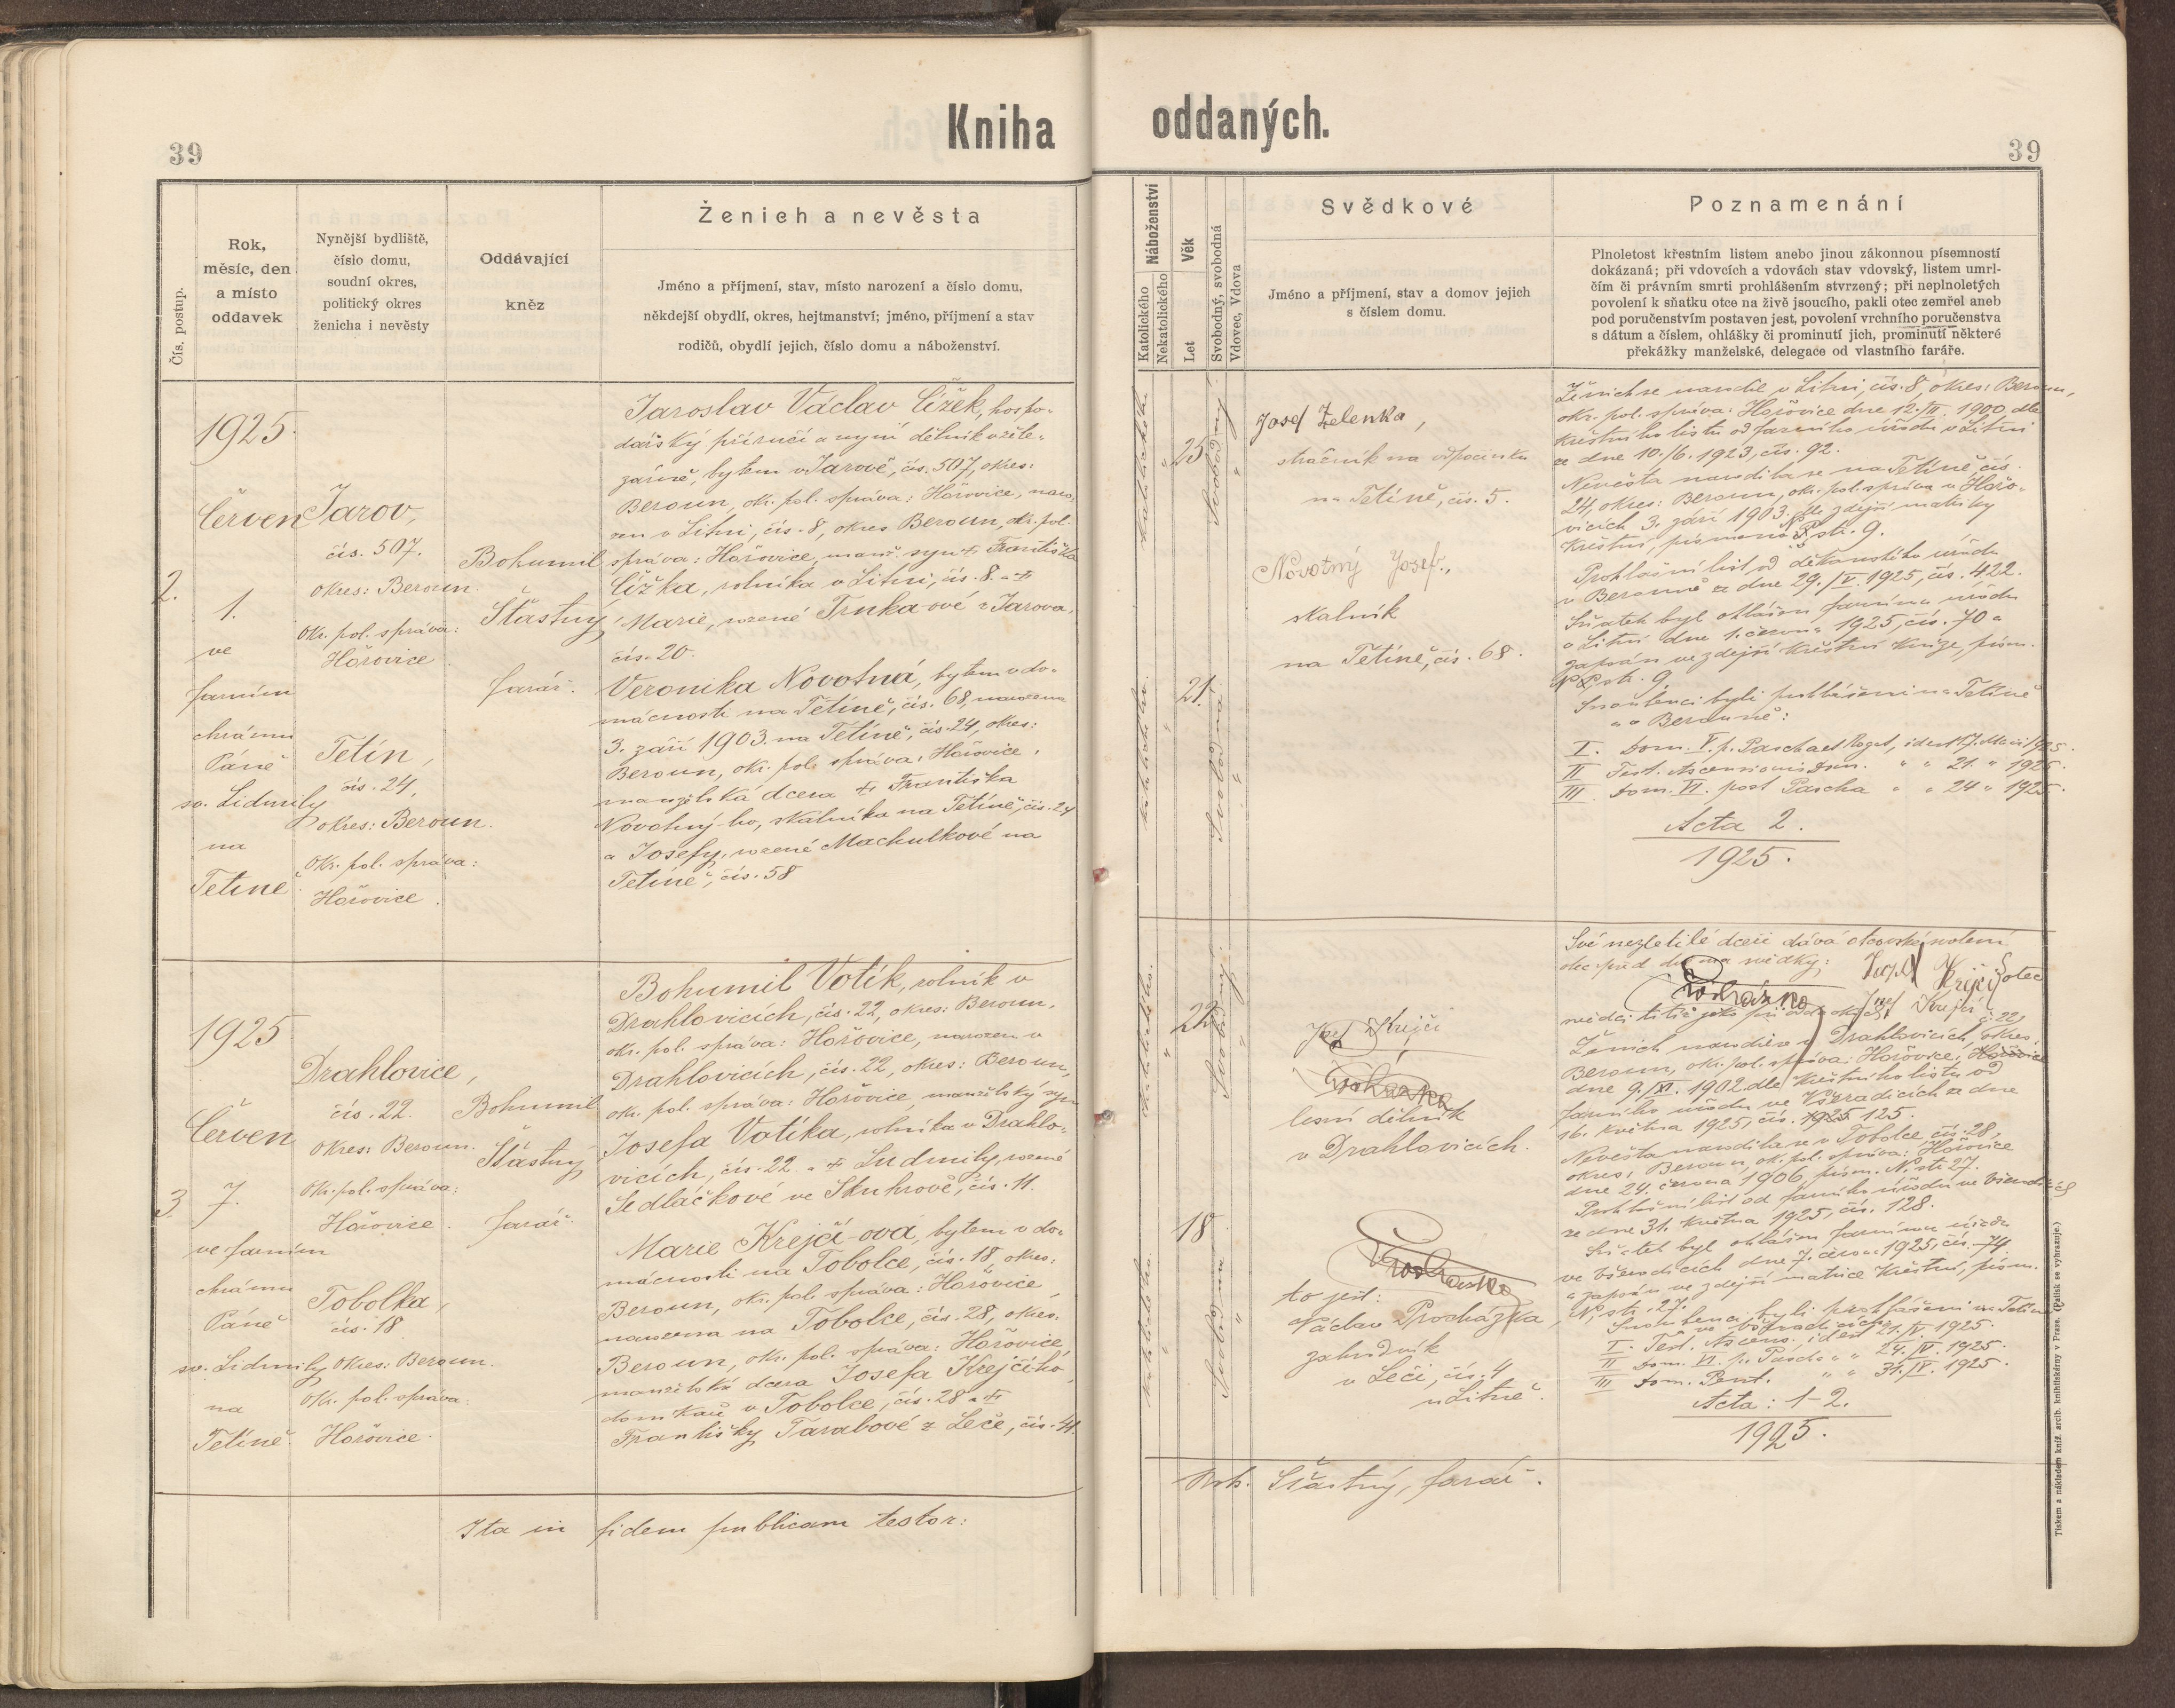 Kniha
oddaných.
39
39
Čís. postup.
Rok,
měsíc, den
a místo
oddavek
Nynější bydliště,
číslo domu,
soudní okres,
politický okres
ženicha i nevěsty
Oddávající
kněz
Ženich a nevěsta
Jméno a příjmení, stav, místo narození a číslo domu,
někdejší obydlí, okres, hejtmanství; jméno, příjmení a stav
rodičů, obydlí jejich, číslo domu a náboženství.
Náboženství
Katolického
Nekatolického
Věk
Let
Svobodný, svobodná
Vdovec, Vdova
Svědkové
Jméno a příjmení, stav a domov jejich
s číslem domu.
Poznamenání
Plnoletost křestním listem anebo jinou zákonnou písemností
dokázaná; při vdovcích a vdovách stav vdovský, listem umrl-
čím či právním smrti prohlášením stvrzený; při neplnoletých
povolení k sňatku otce na živě jsoucího, pakli otec zemřel aneb
pod poručenstvím postaven jest, povolení vrchního poručenstva
s dátum a číslem, ohlášky či prominutí jich, prominutí některé
překážky manželské, delegace od vlastního faráře.
2.
1925.
Červen
1.
ve
farním
chrámu
Páně
sv. Lidmily
na
Tetíně.
Jarov,
čís. 507.
okres: Beroun.
Okr. pol. správa:
Hořovice.
Tetín,
čís. 24,
okres: Beroun.
Okr. pol. správa:
Hořovice.
Bohumil
Šťastný
farář.
Jaroslav Václav Čížek, hospo-
dářský příručí a nyní dělník v žele-
zárně, bytem v Jarově, čís. 507, okres:
Beroun, okr. pol. správa: Hořovice, naro-
zen v Litni, čís. 8, okres Beroun, okr. pol.
správa: Hořovice, manž. syn † Františka
Čížka, rolníka v Litni, čís. 8. a †
Marie, rozené Trnka-ové z Jarova,
čís. 20.
Veronika Novotná, bytem v do-
mácnosti na Tetíně, čís. 68, narozena
3. září 1903. na Tetíně, čís. 24, okres:
Beroun, okr. pol. správa: Hořovice,
manželská dcera † Františka
Novotný-ho, skalníka na Tetíně, čís. 24
a Josefy, rozené Machulkové na
Tetíně, čís. 58
katolického.
"
25
Svobodný.
"
katolického.
"
21.
Svobodná.
"
Josef Zelenka,
strážník na odpočinku
na Tetíně, čís. 5.
Novotný Josef.,
skalník
na Tetíně, čís. 68.
Ženich se narodil v Litni, čís. 8, okres: Beroun,
okr. pol. správa: Hořovice dne 12./II. 1900, dle
křestního listu od farního úřadu v Litni
ze dne 10./6. 1923, čís. 92.
Nevěsta narodila se na Tetíně, čís.
24, okres: Beroun, okr. pol. správa v Hořo-
vicích 3. září 1903. dle zdejší matriky
křestní, písmeno N str. 9.
Prohlašní list od děkanského úřadu
v Berouně ze dne 29./V. 1925, čís. 422.
Sňatek byl ohlášen farnímu úřadu
v Litni dne 1. června 1925, čís. 70 a
zapsán ve zdejší křestní knize, písm.
N, str. 9.
Snoubenci byli prohlášeni na Tetíně
a v Berouně:
I. Dom. V. p. Pascha et Rogat, id est 17. Maii 1925.
II Fest. Ascensionis Dom. " " 21. " 1925.
III Dom. VI. post Pascha " " 24 " 1925.
Acta 2.
1925.
3.
1925
Červen
7.
ve farním
chrámu
Páně
sv. Lidmily
na
Tetíně.
Drahlovice,
čís. 22.
okres: Beroun.
Okr. pol. správa:
Hořovice.
Tobolka,
čís. 18
okres: Beroun.
Okr. pol. správa:
Hořovice.
Bohumil
Šťastný
farář.
Bohumil Votík, rolník v
Drahlovicích, čís. 22, okres: Beroun,
okr. pol. správa: Hořovice, narozen v
Drahlovicích, čís. 22, okres: Beroun,
okr. pol. správa: Hořovice, manželský syn
Josefa Votíka, rolníka v Drahlo-
vicích, čís. 22. a † Ludmily, rozené
Sedláčkové ve Skuhrově, čís. 11.
Marie Krejčí-ová, bytem v do-
mácnosti na Tobolce, čís. 18, okres:
Beroun, okr. pol. správa: Hořovice,
narozena na Tobolce, čís. 28, okres,
Beroun, okr. pol. správa: Hořovice,
manželská dcera Josefa Krejčího,
domkáře v Tobolce, čís. 28 a †
Františky Tarabové z Leče, čís. 4.
katolického.
"
22
Svobodný
"
katolického.
18
Svobodná
"
Josef Krejčí
lesní dělník
v Drahlovicích.
to jest:
Václav Procházka,
zahradník
v Leči, čís. 4
u Litně.
Své nezletilé dceři dává otcovské svolení
otec před dvěma svědky: Josef Krejčí otec
Procházka Josef Krejčí
svědci titíž jako při oddavkách
Ženich narodil se v Drahlovicích, č. 22, okres:
Beroun, okr. pol. správa: Hořovice,
dne 9./XI. 1902. dle křestního listu od
farního úřadu ve Všeradicích ze dne
16. května 1925, čís. 125.
Nevěsta narodila se v Tobolce, čís. 28,
okres: Beroun, ok. pol. správa: Hořovice
dne 24. června 1906, písm. N. str. 27.
Prohlašní list od farního úřadu ve Všeradicích
ze dne 31. května 1925, čís. 128.
Sňatek byl ohlášen farnímu úřadu
ve Všeradicích dne 7. června 1925, čís. 74
a zapsán ve zdejší matrice křestní, písm.
N, str. 27.
Snoubenci byli prohlášeni na Tetíně
a ve Všeradicích:
I. Fest. Ascens. id est 21./V. 1925.
II Dom. VI. p. Pascha " " 24. IV. 1925.
III Dom. Pent. " " 31. IV. 1925.
Acta: 1-2.
1925.
Ita in fidem publicam testor:
Boh. Šťastný, farář.
Tiskem a nákladem kníž. arcib. knihtiskárny v Praze. (Patisk se vyhrazuje.)